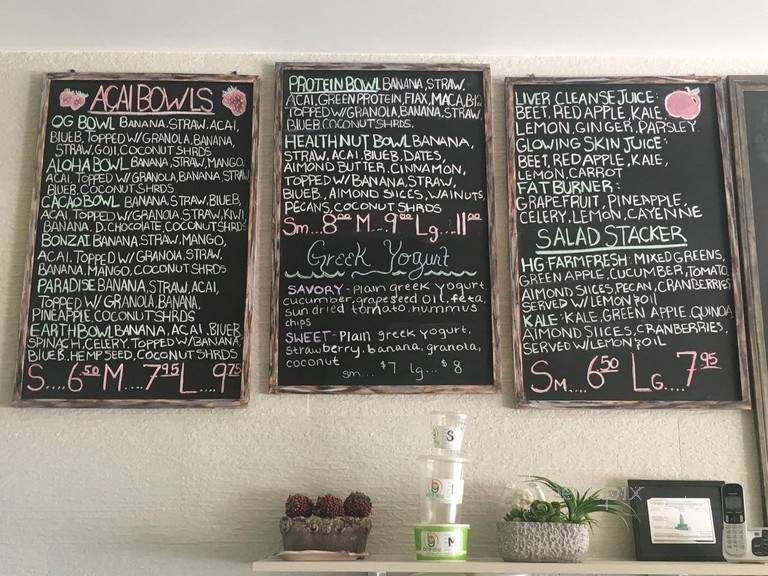 ACAI BOWLS
OG BOWL BANANA, STRAW, ACAI,
BLUEB, TOPPED W/GRANOLA, BANANA,
STRAW, GOJI, COCONUT SHRDS
ALOHA BOWL BANANA, STRAW, MANGO,
ACAI. TOPPED W/GRANOLA, BANANA, STRAW
BLUEB, COCONUT SHRDS
CACAO BOWL BANANA, STRAW, BLUEB,
ACAI. TOPPED W/GRANOLA, STRAW, KIWI,
BANANA, D. CHOCOLATE, COCONUT SHRDS
BONZAI BANANA, STRAW, MANGO,
ACAI. TOPPED W/GRANOLA, STRAW,
BANANA, MANGO, COCONUT SHRDS
PARADISE BANANA, STRAW, ACAI,
TOPPED W/GRANOLA, BANANA,
PINEAPPLE, COCONUT SHRDS
EARTH BOWL BANANA, ACAI, BLUEB,
SPINACH, CELERY. TOPPED W/BANANA,
BLUEB, HEMPSEED, COCONUT SHRDS
S....6.50 M...7.95 L...9.75
PROTEIN BOWL BANANA, STRAW,
ACAI, GREEN PROTEIN, FLAX, MACA, B12
TOPPED W/GRANOLA, BANANA, STRAW
BLUEB, COCONUT SHRDS.
HEALTH NUT BOWL BANANA,
STRAW, ACAI, BLUEB, DATES,
ALMOND BUTTER, CINNAMON,
TOPPED W/BANANA, STRAW,
BLUEB, ALMOND SLICES, WALNUTS,
PECANS, COCONUT SHRDS
Sm...8.00 M...9.00 Lg...11.00
Greek Yogurt
SAVORY - Plain greek yogurt
cucumber, grapeseed oil, feta,
sun dried tomato, hummus
chips
SWEET - Plain greek yogurt,
strawberry, banana, granola,
coconut
sm... $7 lg... $8
LIVER CLEANSE JUICE:
BEET, RED APPLE, KALE,
LEMON, GINGER, PARSLEY
GLOWING SKIN JUICE:
BEET, RED APPLE, KALE,
LEMON, CARROT
FAT BURNER:
GRAPEFRUIT, PINEAPPLE,
CELERY, LEMON, CAYENNE
SALAD STACKER
HG FARM FRESH: MIXED GREENS,
GREEN APPLE, CUCUMBER, TOMATO,
ALMOND SLICES, PECAN, CRANBERRIES
SERVED W/LEMON & OIL
KALE: KALE, GREEN APPLE, QUINOA
ALMOND SLICES, CRANBERRIES,
SERVED W/LEMON & OIL
Sm...6.50 Lg...7.95